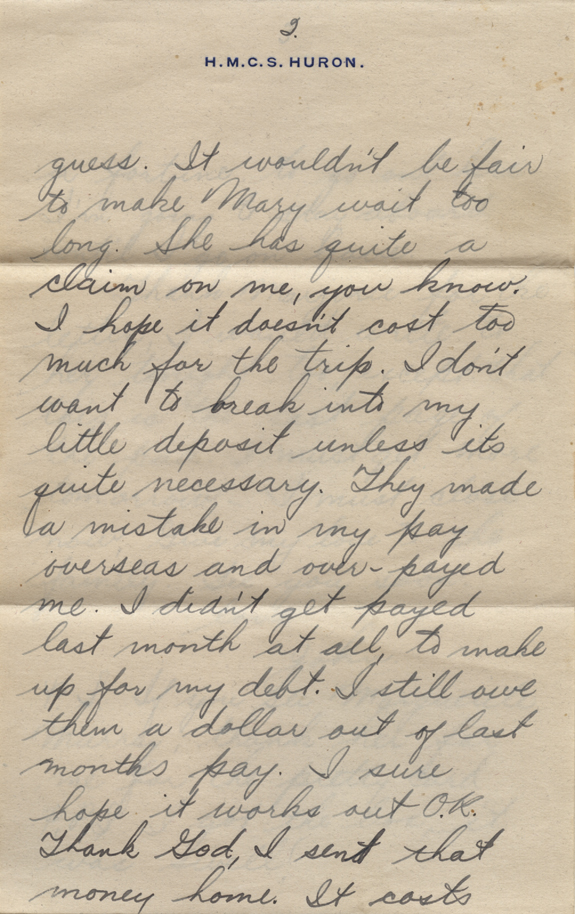 2.
H.M.C.S. HURON.
guess. It wouldn't be fair
to make Mary wait too
long. She has quite a
claim on me, you know.
I hope it doesn't cost too
much for the trip. I don't
want to break into my
little deposit unless its
quite necessary. They made
a mistake in my pay
overseas and over-payed
me. I didn't get payed
last month at all, to make
up for my debt. I still owe
them a dollar out of last
months pay. I sure
hope it works out O.K.
Thank God, I sent that
money home. It costs